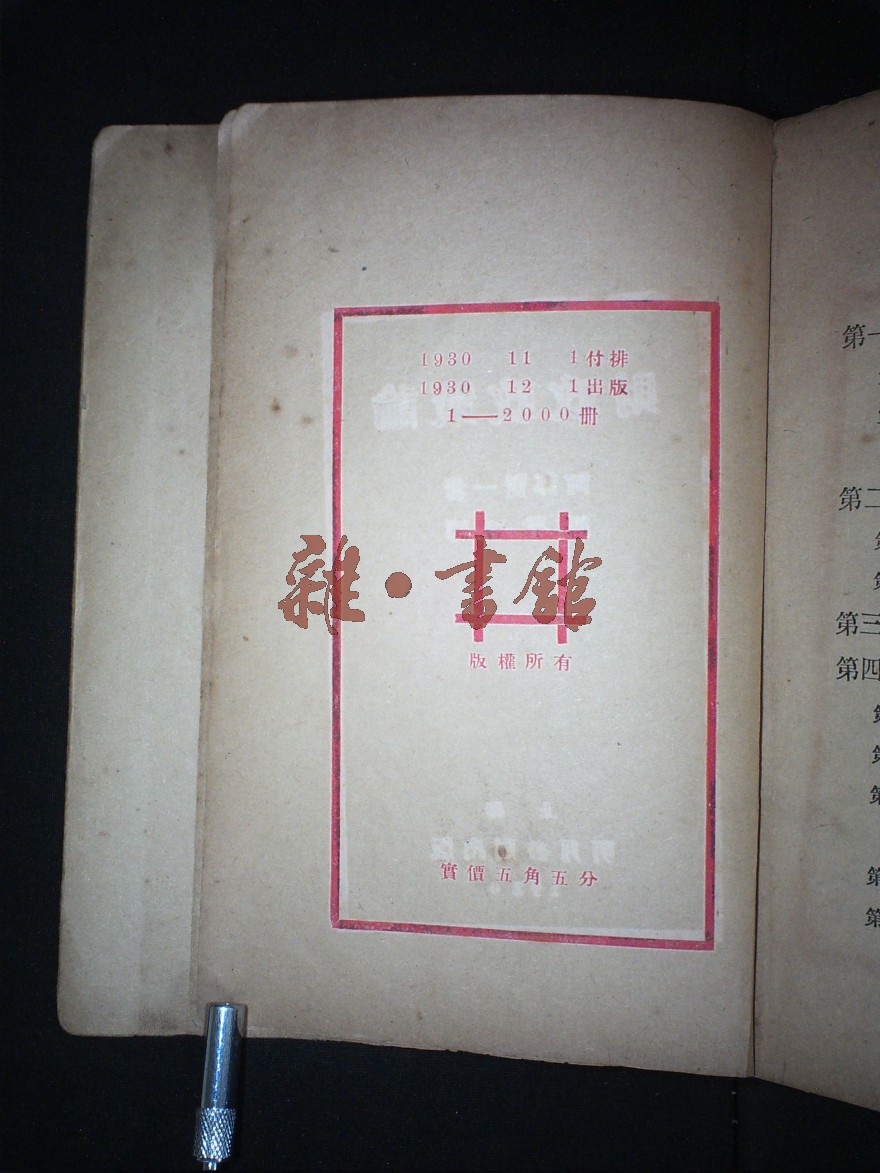 1930 11 1付排
1930 12 1出版
1——2000冊
雜·書館
版權所有
實價五角五分
第一
第二
第
第
第三
第四
第
第
第
第
第